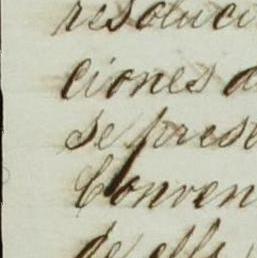 resoluci
ciones d
se prese
Conven
de ella